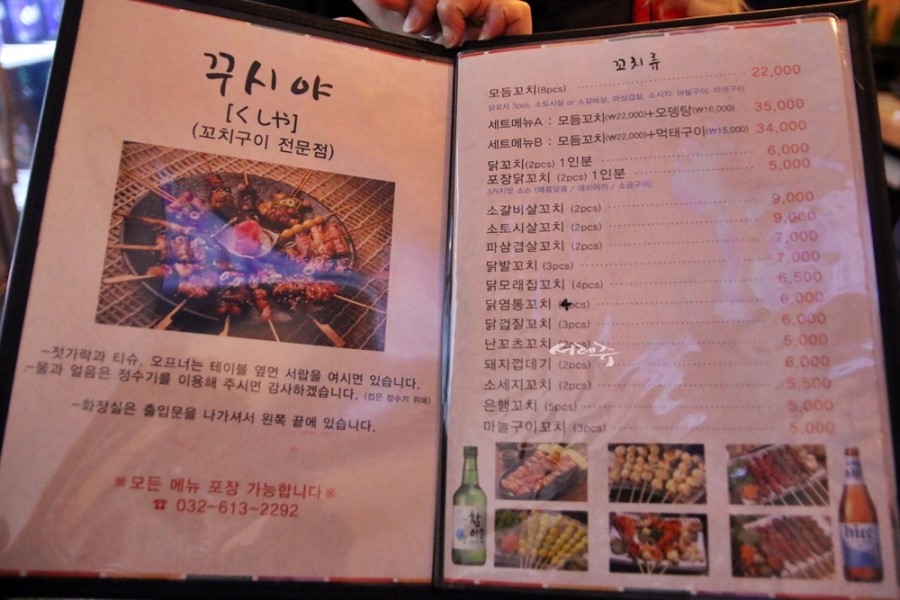 꾸시야
[くしや]
(꼬치구이 전문점)
-젓가락과 티슈, 오프너는 테이블 옆면 서랍을 여시면 있습니다.
-물과 얼음은 정수기를 이용해 주시면 감사하겠습니다. (컵은 정수기 위에)
-화장실은 출입문을 나가셔서 왼쪽 끝에 있습니다.
※모든 메뉴 포장 가능합니다※
☎ 032-613-2292
꼬치류
모듬꼬치(8pcs) 22,000
닭꼬치 3pcs, 소토시살 or 소갈비살, 파삼겹살, 소시지, 마늘구이,
세트메뉴A : 모듬꼬치(₩22,000)+오뎅탕(₩16,000) 35,000
세트메뉴B : 모듬꼬치(₩22,000)+먹태구이(₩15,000) 34,000
닭꼬치(2pcs) 1인분 6,000
포장닭꼬치 (2pcs) 1인분 5,000
3가지맛 소스 (매콤달콤 / 데리야끼 / 소금구이)
소갈비살꼬치 (2pcs) 9,000
소토시살꼬치 (2pcs) 9,000
파삼겹살꼬치 (2pcs) 7,000
닭발꼬치 (3pcs) 7,000
닭모래집꼬치 (4pcs) 6,500
닭염통꼬치 (4pcs) 6,000
닭껍질꼬치 (3pcs) 6,000
난꼬츠꼬치 (2pcs) 5,000
돼지껍데기 (2pcs) 6,000
소세지꼬치 (2pcs) 5,500
은행꼬치 (5pcs) 5,000
마늘구이꼬치 (3pcs) 5,000
참이슬
hite